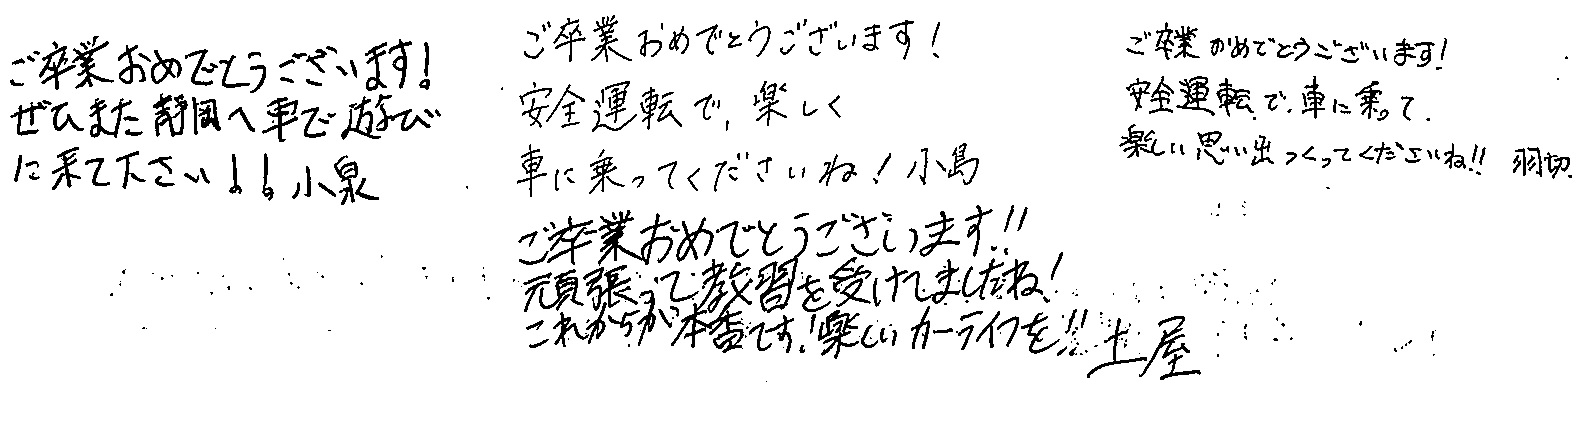 ご卒業おめでとうございます!
ぜひまた静岡へ車で遊び
に来て下さい!! 小泉
ご卒業おめでとうございます!
安全運転で、楽しく
車に乗ってくださいね! 小島
ご卒業おめでとうございます!
安全運転で、車に乗って、
楽しい思い出つくってくださいね!! 羽切
ご卒業おめでとうございます!!
頑張って教習を受けてましたね!
これからが本番です!楽しいカーライフを!! 土屋